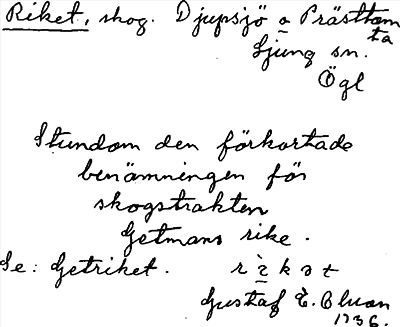 Riket, skog. Djupsjö o Prästtom
ta
Ljung sn.
Ögl
Stundom den förkortade
benämningen för
skogstrakten
Getmans rike.
Se: Getriket. r ì k ə t
Gustaf E. Cluan
1736.